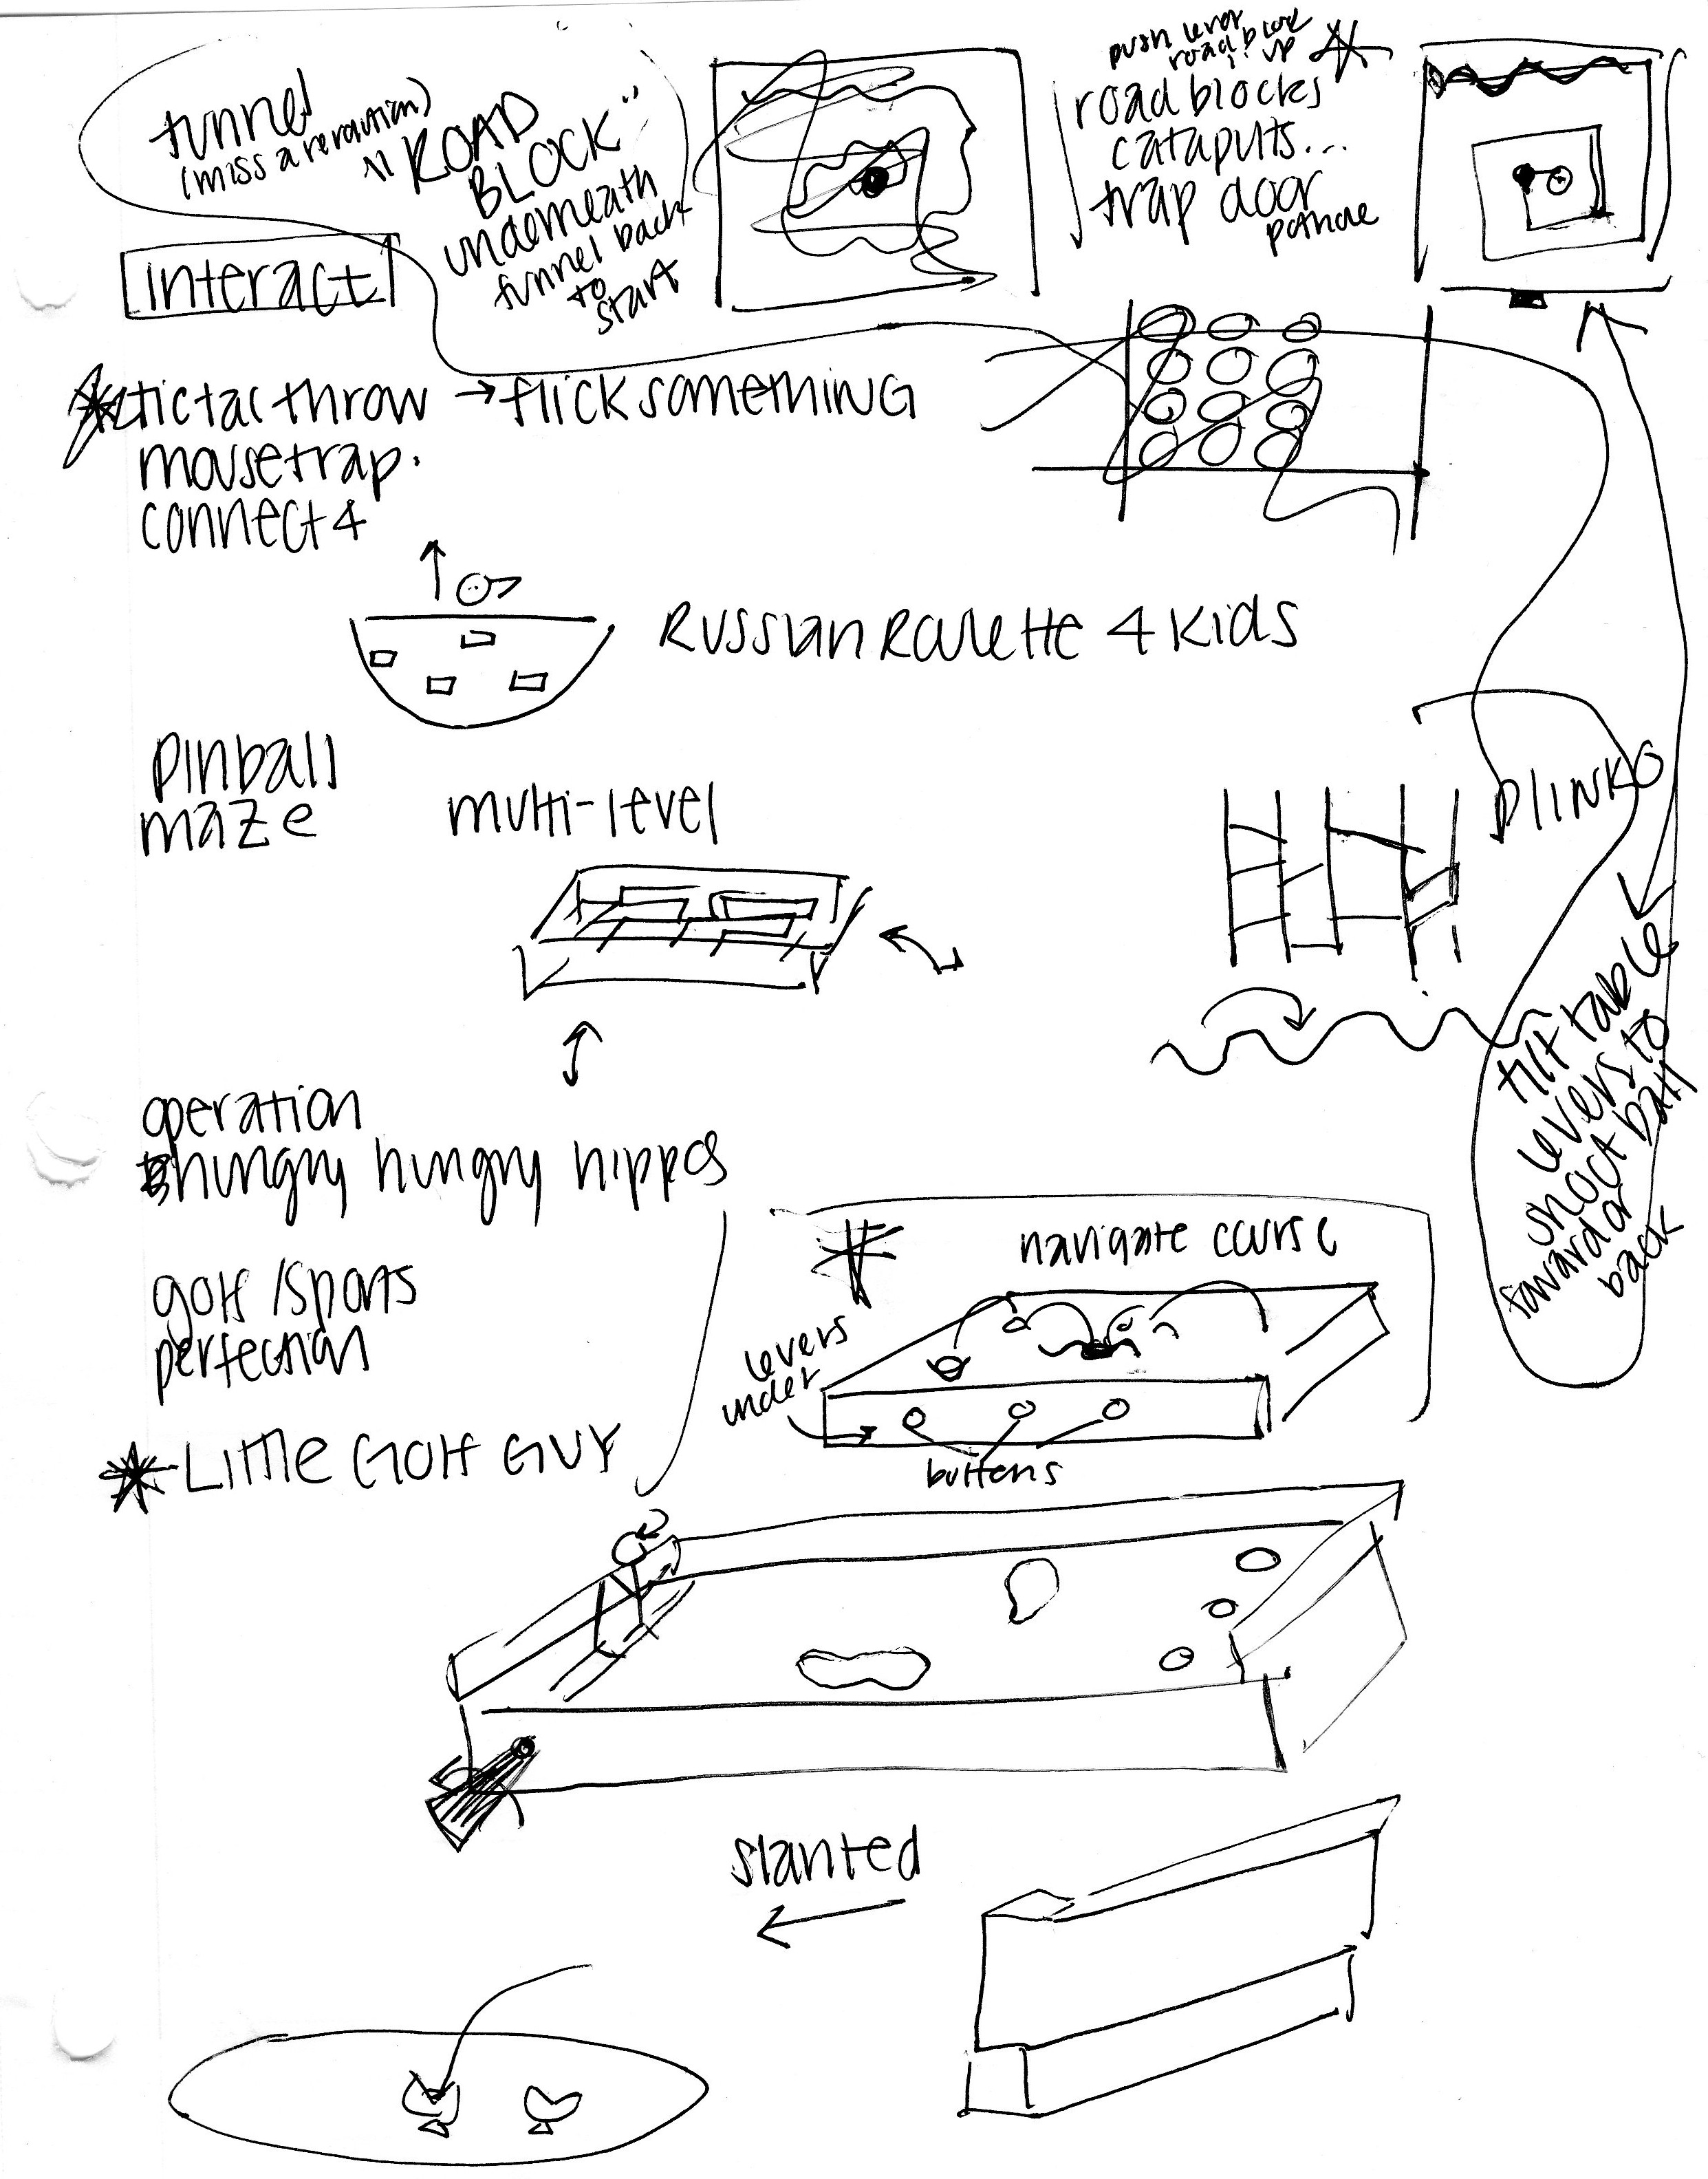 tunnel
(miss a rotation)
"ROAD
BLOCK"
underneath
funnel back
to
start
push lever
road block
up
road blocks
catapults...
trap door
pothole
interact
tictac throw → flick something
mousetrap.
connect 4
Russian Roulette 4 Kids
pinball
maze
multi-level
plinko
tilt table
levers to
shoot ball
foward or
back
operation
hungry hungry hippos
navigate course
golf/sports
perfection
levers
under
buttons
Little Golf Guy
slanted